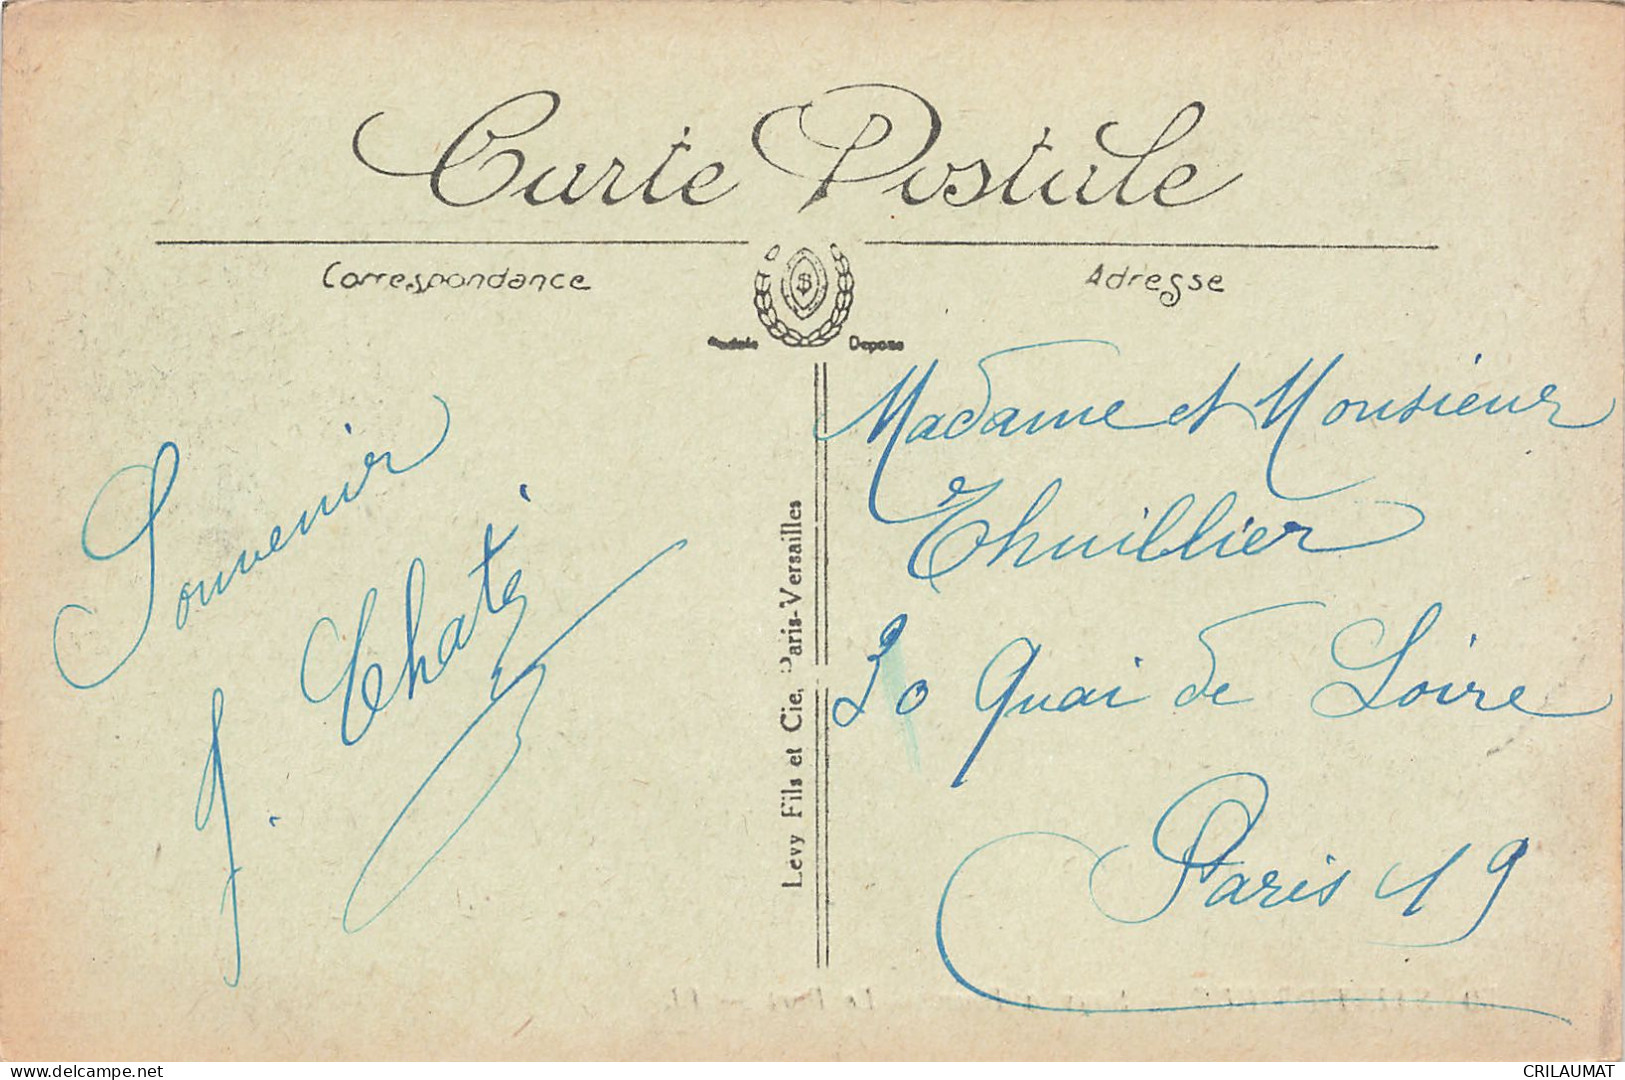 Carte Postale
Correspondance
Adresse
Modèle Déposé
Souvenir
J. Chaté
Levy Fils et Cie, Paris-Versailles
Madame et Monsieur
Thuillier
30 Quai de Loire
Paris 19
www.delcampe.net
CRILAUMAT